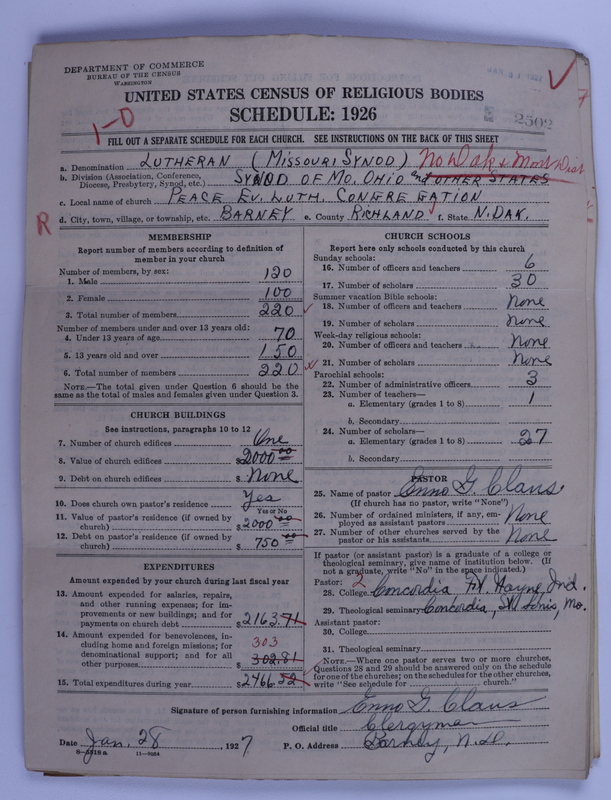 DEPARTMENT OF COMMERCE
BUREAU OF THE CENSUS
WASHINGTON
UNITED STATES CENSUS OF RELIGIOUS BODIES
SCHEDULE: 1926
2502
1-0
FILL OUT A SEPARATE SCHEDULE FOR EACH CHURCH. SEE INSTRUCTIONS ON THE BACK OF THIS SHEET
a. Denomination LUTHERAN (MISSOURI SYNOD) No Dak & Mont Dist
b. Division (Association, Conference, Diocese, Presbytery, Synod, etc.) SYNOD OF MO. OHIO and OTHER STATES
c. Local name of church PEACE EV. LUTH. CONGREGATION
R
d. City, town, village, or township, etc. BARNEY e. County RICHLAND f. State N. DAK.
MEMBERSHIP
Report number of members according to definition of
member in your church
Number of members, by sex:
1. Male 120
2. Female 100
3. Total number of members 220
Number of members under and over 13 years old:
4. Under 13 years of age 70
5. 13 years old and over 150
6. Total number of members 220
NOTE.—The total given under Question 6 should be the
same as the total of males and females given under Question 3.
CHURCH BUILDINGS
See instructions, paragraphs 10 to 12
7. Number of church edifices One
8. Value of church edifices $ 2000 00
9. Debt on church edifices $ None
10. Does church own pastor's residence Yes
Yes or No
11. Value of pastor's residence (if owned by
church) $ 2000 00
12. Debt on pastor's residence (if owned by
church) $ 750 00
EXPENDITURES
Amount expended by your church during last fiscal year
13. Amount expended for salaries, repairs,
and other running expenses; for im-
provements or new buildings; and for
payments on church debt $ 2163.71
14. Amount expended for benevolences, in-
cluding home and foreign missions; for
denominational support; and for all
other purposes $ 302.81
303
15. Total expenditures during year $ 2466.52
CHURCH SCHOOLS
Report here only schools conducted by this church
Sunday schools:
16. Number of officers and teachers 6
17. Number of scholars 30
Summer vacation Bible schools:
18. Number of officers and teachers None
19. Number of scholars None
Week-day religious schools:
20. Number of officers and teachers None
21. Number of scholars None
Parochial schools:
22. Number of administrative officers 3
23. Number of teachers—
a. Elementary (grades 1 to 8) 1
b. Secondary
24. Number of scholars—
a. Elementary (grades 1 to 8) 27
b. Secondary
PASTOR
25. Name of pastor Enno G. Claus
(If church has no pastor, write "None")
26. Number of ordained ministers, if any, em-
ployed as assistant pastors None
27. Number of other churches served by the
pastor or his assistants None
If pastor (or assistant pastor) is a graduate of a college or
theological seminary, give name of institution below. (If
not a graduate, write "No" in the space indicated.)
Pastor: 2
28. College Concordia Ft. Wayne, Ind.
29. Theological seminary Concordia, St. Louis, Mo.
Assistant pastor:
30. College
31. Theological seminary
NOTE.—Where one pastor serves two or more churches,
Questions 28 and 29 should be answered only on the schedule
for one of the churches; on the schedules for the other churches,
write "See schedule for church."
Signature of person furnishing information Enno G. Claus
Official title Clergyman
Date Jan. 28, 1927 P. O. Address Barney, N.D.